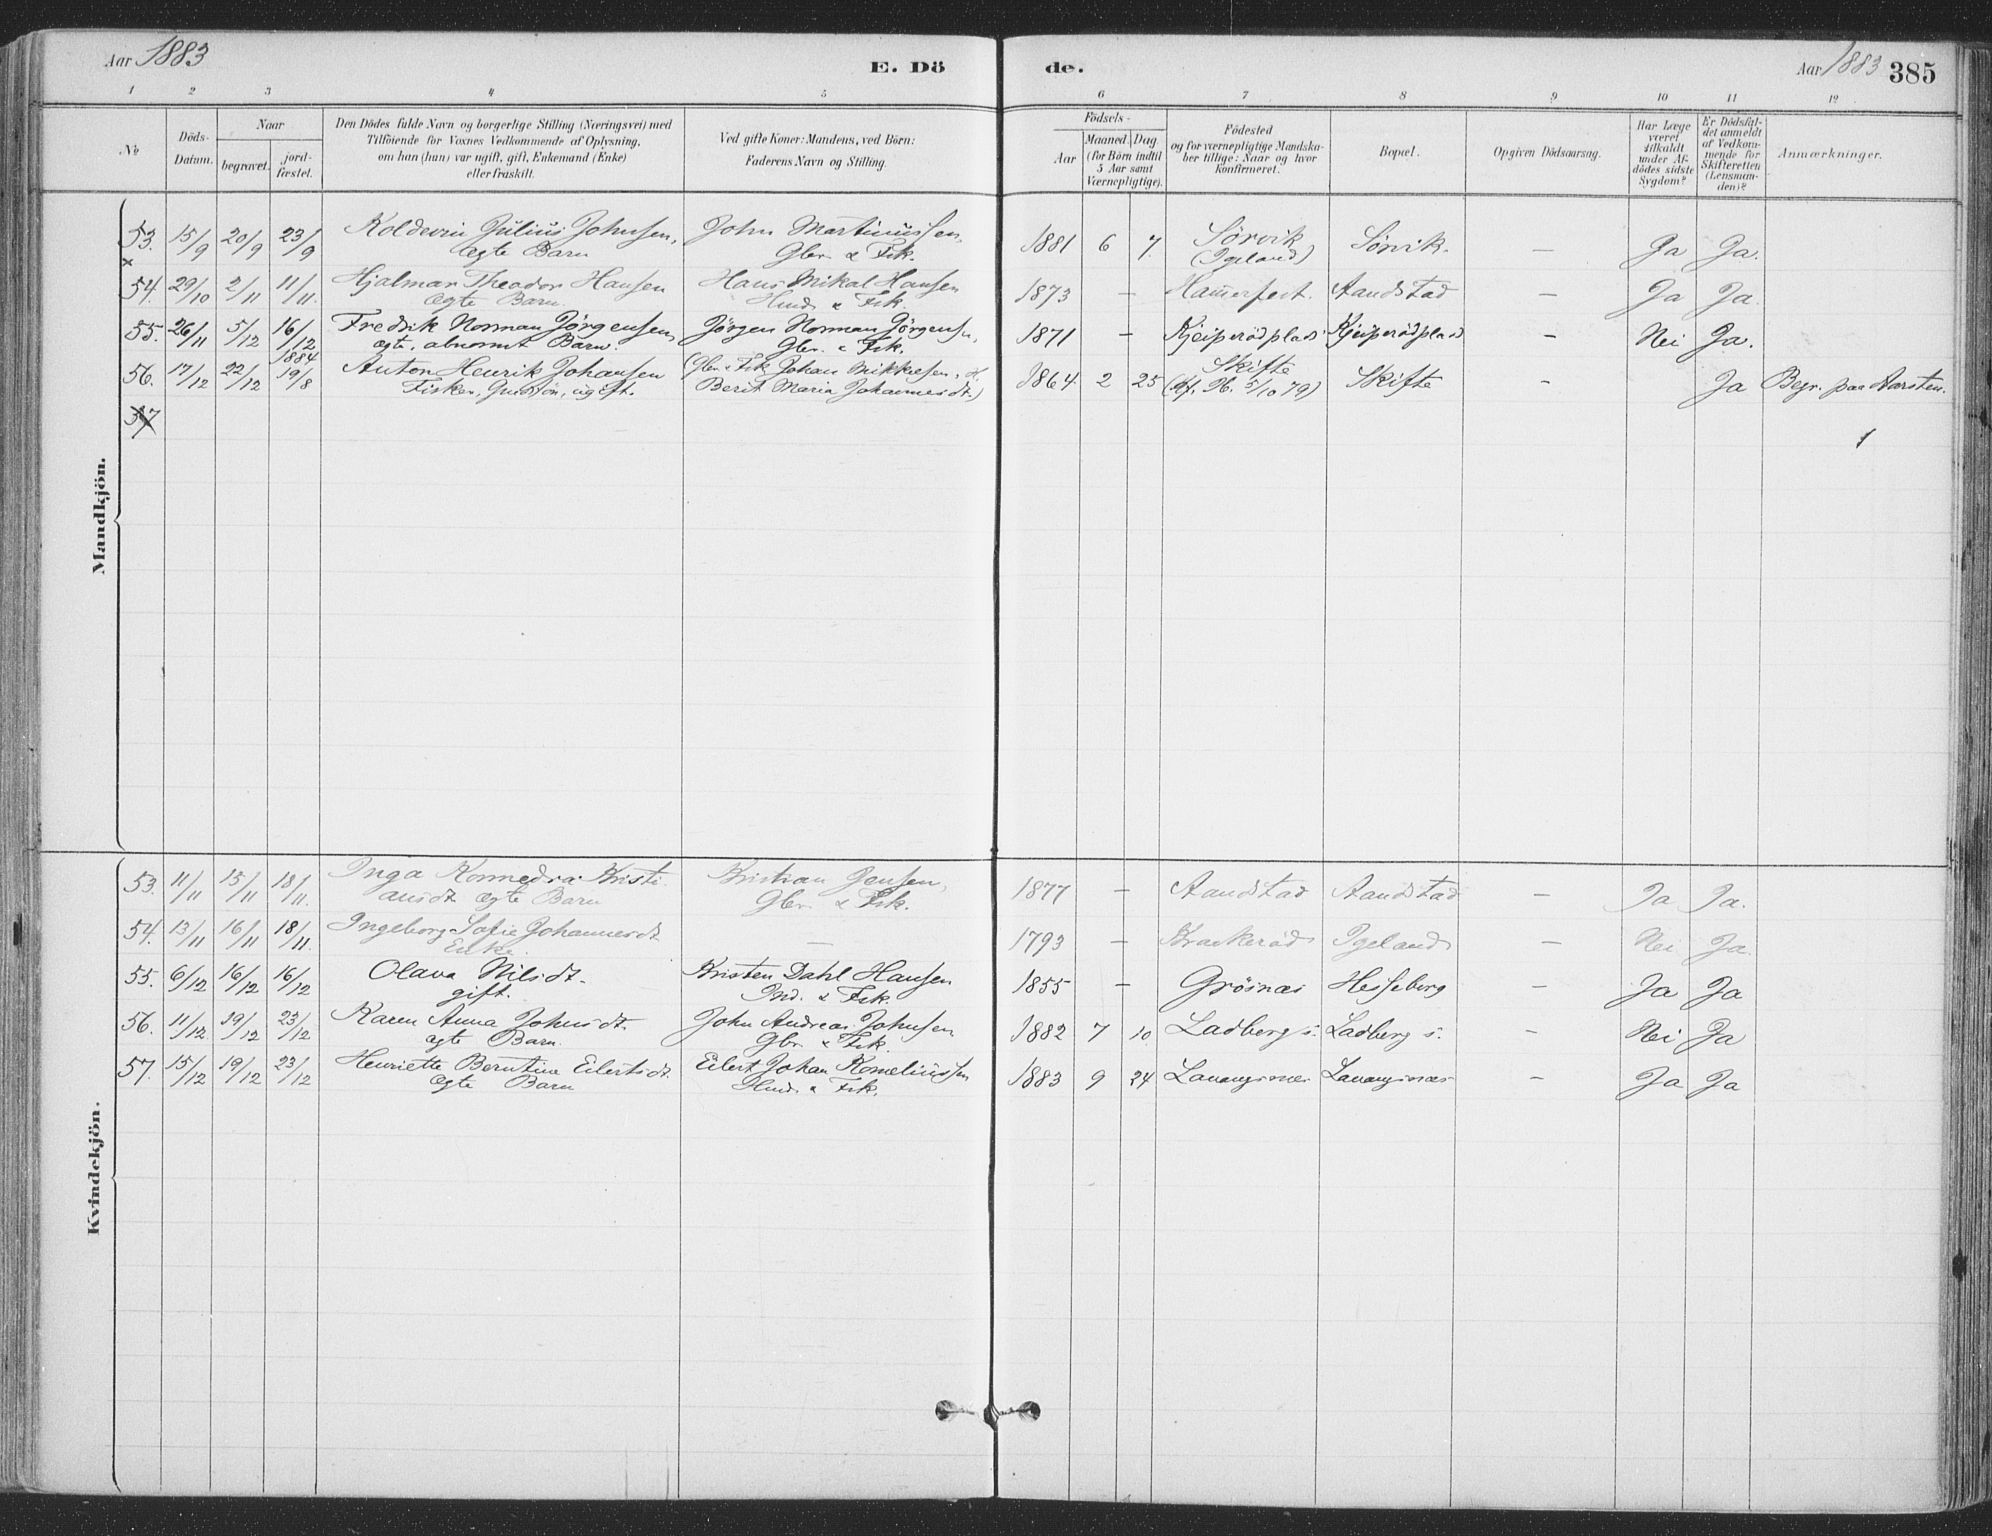 Aar 1883
E. Dö de.
Aar 1883 385
1 2 3 4 5 6 7 8 9 10 11 12
No
Döds-Datum.
Naar
begravet.
jord-fæstet.
Den Dödes fulde Navn og borgerlige Stilling (Næringsvei) med
Tilföiende for Voxnes Vedkommende af Oplysning,
om han (hun) var ugift, gift, Enkemand (Enke)
eller fraskilt.
Ved gifte Koner: Mandens, ved Börn:
Faderens Navn og Stilling.
Födsels-
Aar
Maaned. Dag
(for Börn indtil
5 Aar samt
Værnepligtige).
Födested
og for værnepligtige Mandska-
ber tillige: Naar og hvor
konfirmeret.
Bopæl.
Opgiven Dödsaarsag.
Har Læge
været
tilkaldt
under Af-
dödes sidste
Sygdom?
Er Dödsfal-
det anmeldt
af Vedkom-
mende for
Skifteretten
(Lensman-
den)?
Anmærkninger.
Mandkjön.
53. 15/9 20/9 23/9 Koldevin Julius Johnsen, John Martinussen, 1881 6 7. Sörvik Sörvik. — Ja Ja.
ægte Barn Gbr. & Fsk. (Igeland)
54. 29/10 2/11 11/11. Hjalmar Theodor Hansen Hans Mikal Hansen 1873 — Hammerfest. Aandstad — Ja Ja.
ægte Barn. Hmd. & Fsk.
55. 26/11 5/12 16/12 Fredrik Norman Jørgensen, Jørgen Norman Jørgensen, 1871 — Kjeiperödplads Kjeiperödplads — Nei Ja.
ægte, abnormt Barn. Gbr. & Fsk.
1884
56. 17/12 22/12 19/8 Anton Henrik Johansen (Gbr. & Fsk. Johan Mikkelsen, H. 1864 2 25 Skifte Skifte — Ja Begr. paa Aarsten.
Fisker, Gudsön, ugift. Berit Maria Johannesdt.) (kf. Ib. 5/10 79)
57
Kvindekjön.
53. 11/11 15/11 18/11. Inga Konnedra Kristi- Kristian Jensen, 1877 — Aandstad Aandstad — Ja Ja.
ansdt ægte Barn Gbr. & Fsk.
54. 13/11 16/11 18/11. Ingeborg Sofie Johannesdt — 1793 — Kraakeröd Igeland — Nei Ja.
Enke.
55. 6/12 16/12 16/12 Olava Nilsdt. Kristen Dahl Hansen 1855 — Grösnæs Hesseberg — Ja Ja
gift. Ind. & Fsk.
56. 11/12. 19/12 23/12 Karen Anna Johnsdt. John Andreas Johnsen 1882 7 10 Ladberg s. Ladberg s. — Nei Ja
ægte Barn. Gbr. & Fsk.
57. 15/12 19/12 23/12 Henriette Berntine Eilertsdt. Eilert Johan Korneliussen 1883 9 24 Lavangsnæs Lavangsnæs — Ja Ja
ægte Barn Hmd. & Fsk.